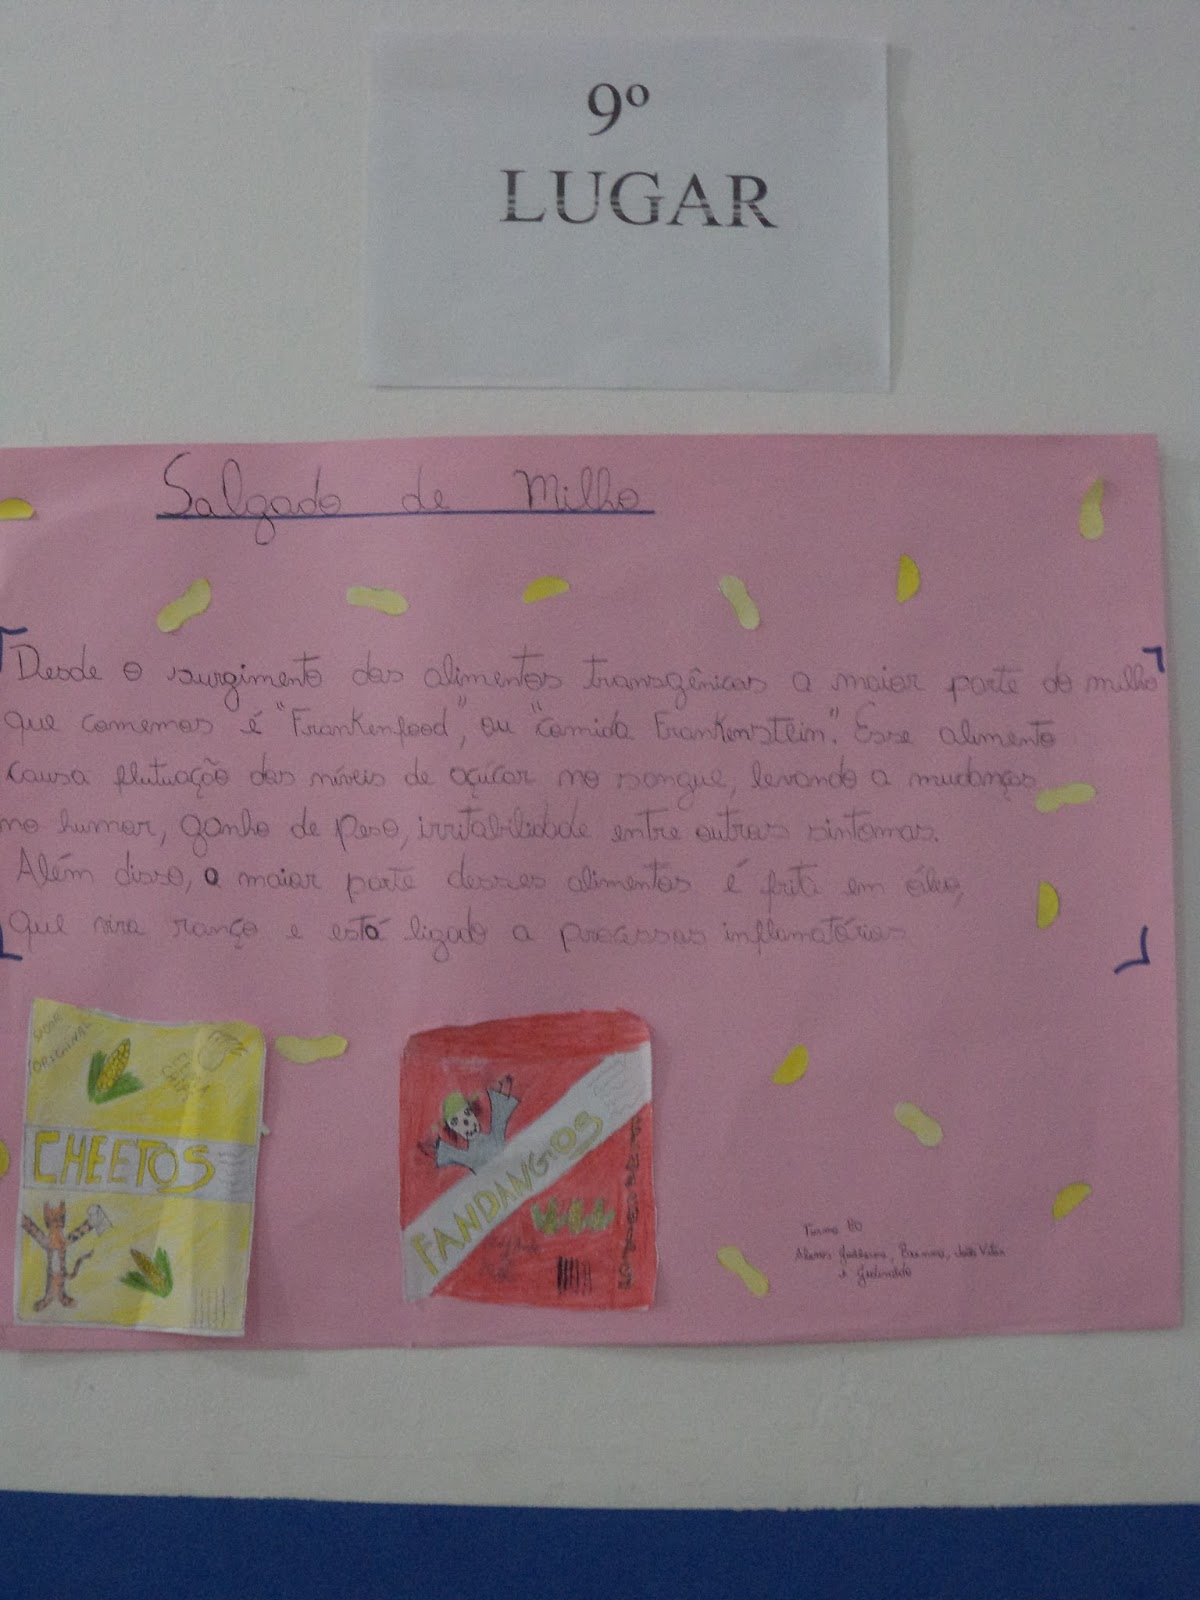 9º
LUGAR
Salgado de Milho
Desde o surgimento dos alimentos transgênicos a maior parte do milho
que comemos é "Frankenfood", ou "comida Frankenstein". Esse alimento
causa flutuação dos níveis de açúcar no sangue, levando a mudanças
no humor, ganho de peso, irritabilidade entre outros sintomas.
Além disso, a maior parte desses alimentos é frite em óleo,
que vira ranço e está ligado a processos inflamatórios
SABOR
ORIGINAL
CHEETOS
FANDANGOS
Turma 80
Alunos Guilherme, João Vitor
e